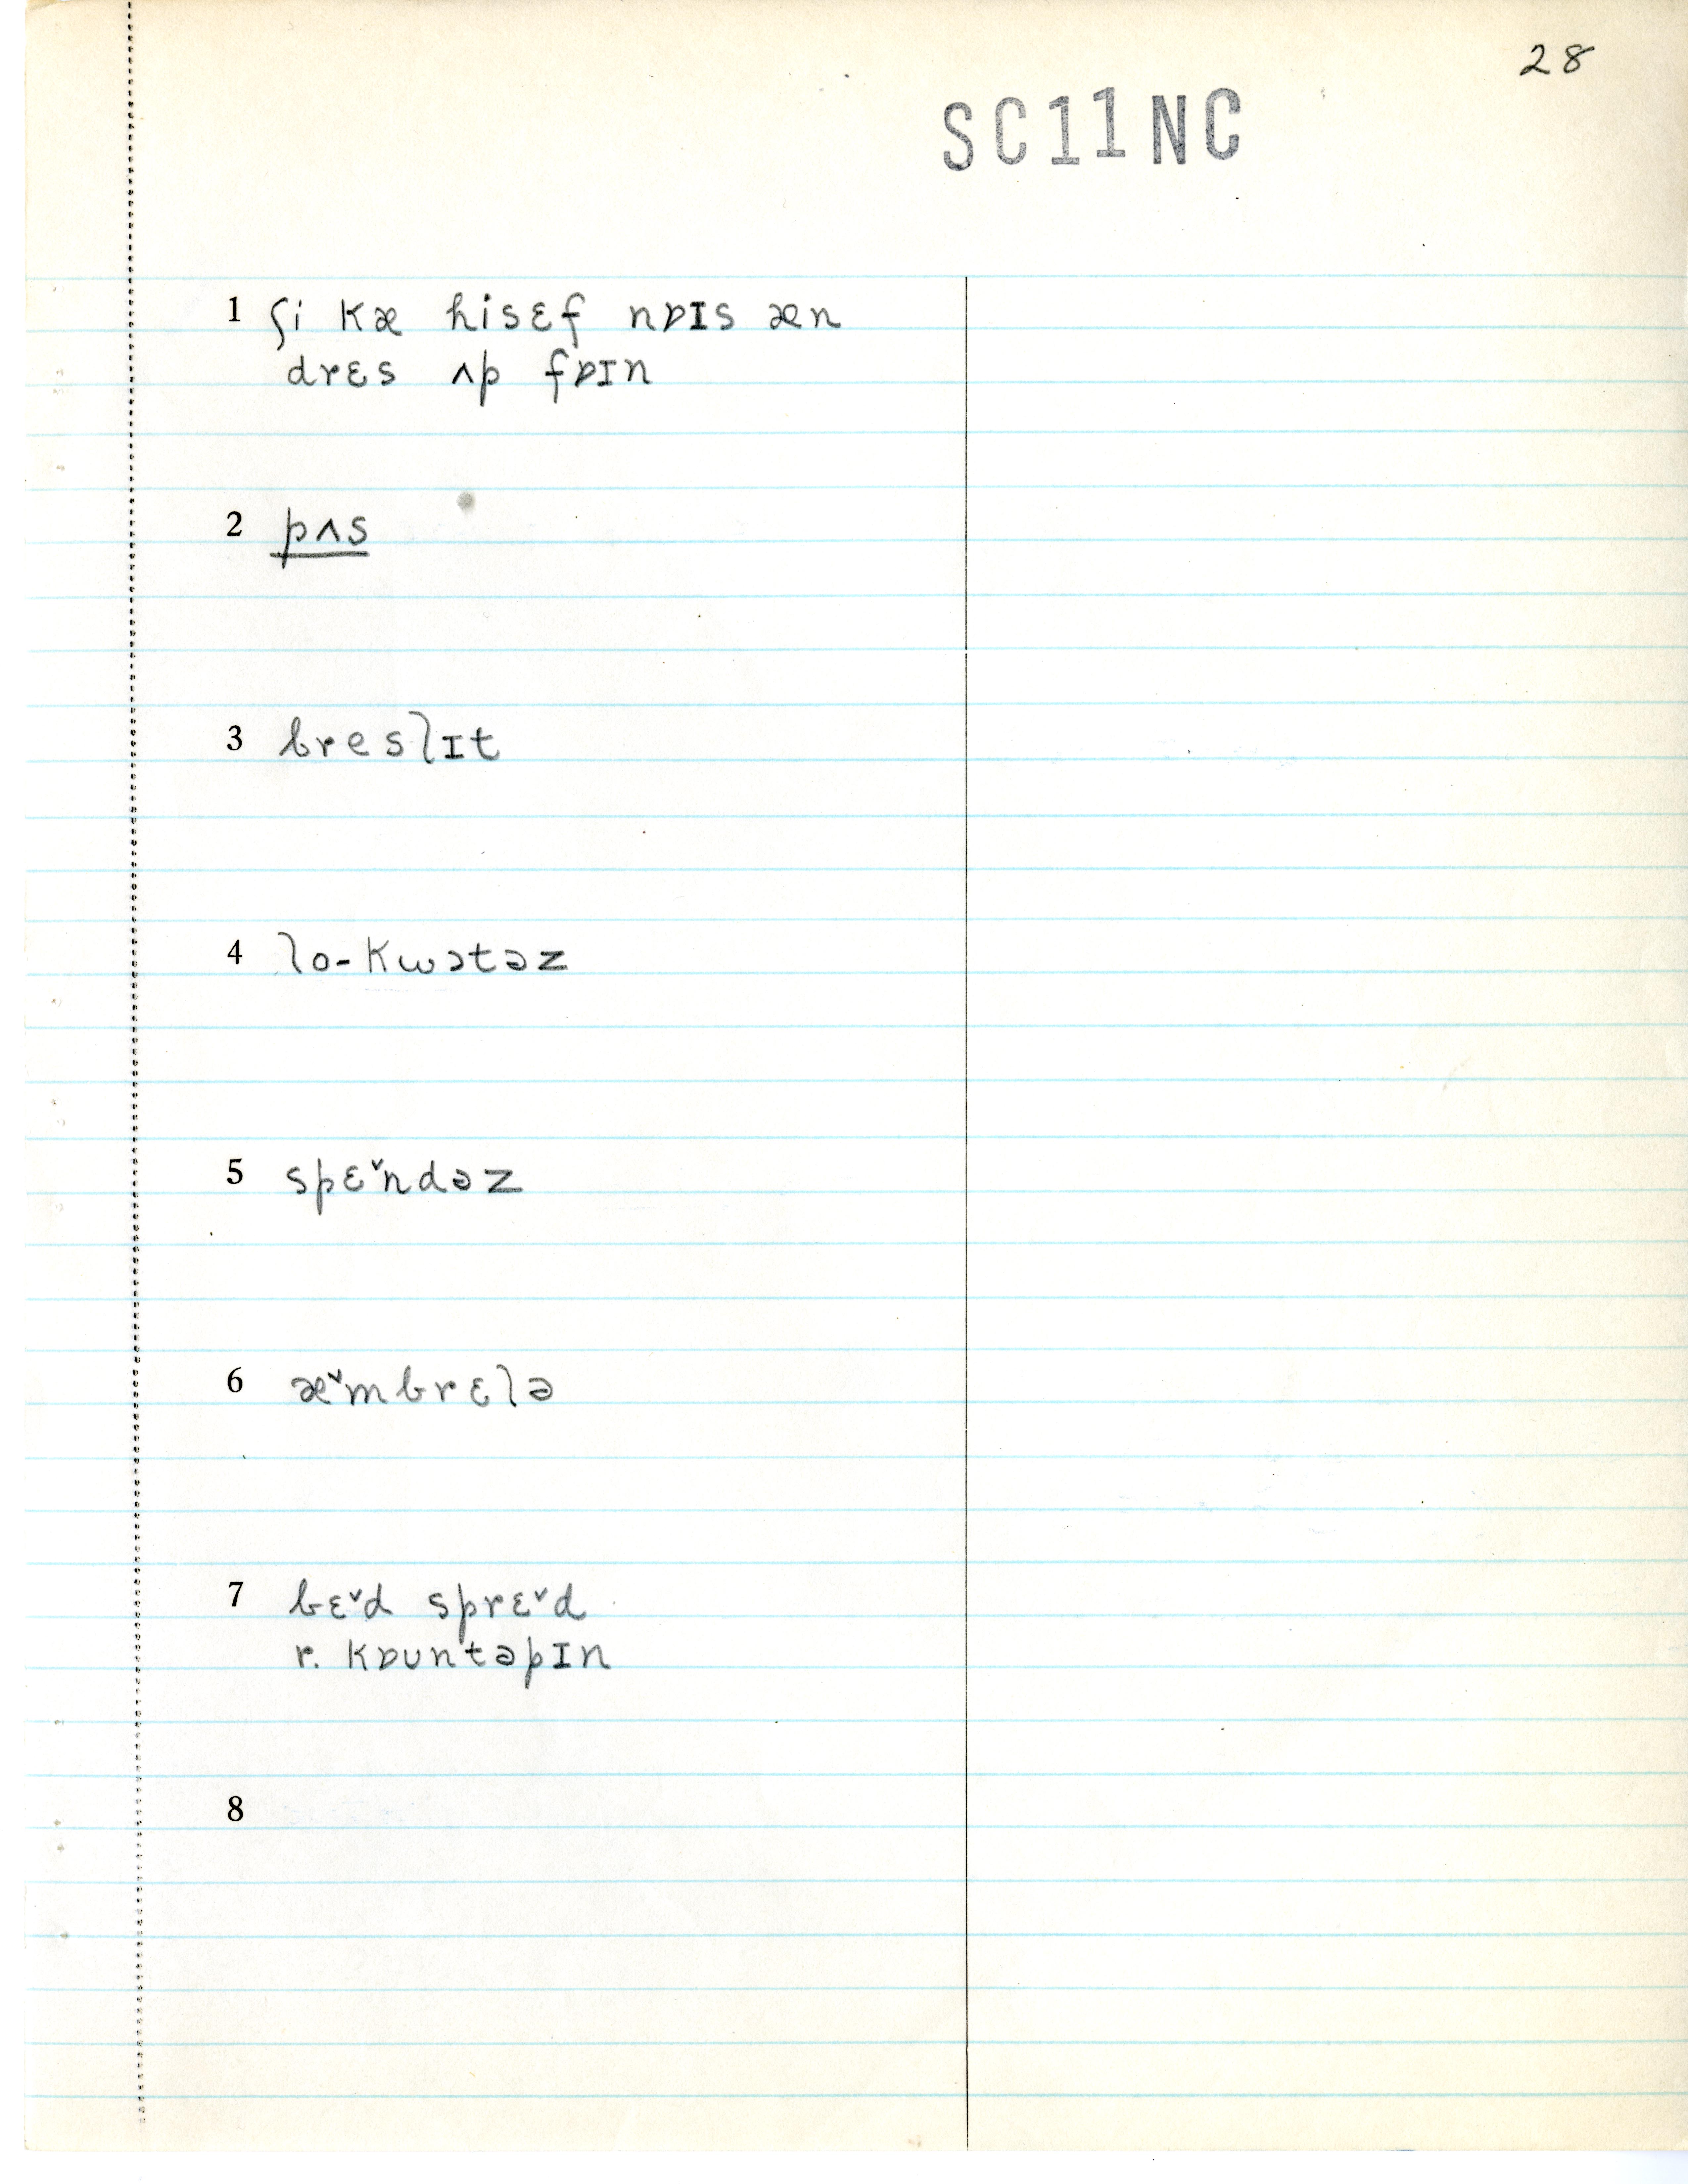 28
SC11NC
1 ʃi kæ hisɛf nɒɪs æn
drɛs ʌp fɒɪn
2 pʌs
3 breslɪt
4 lo-kwɔtəz
5 spɛ˅ndəz
6 æ˅mbrɛlə
7 bɛ˅d sprɛ˅d
r. kɒʊntəpɪn
8